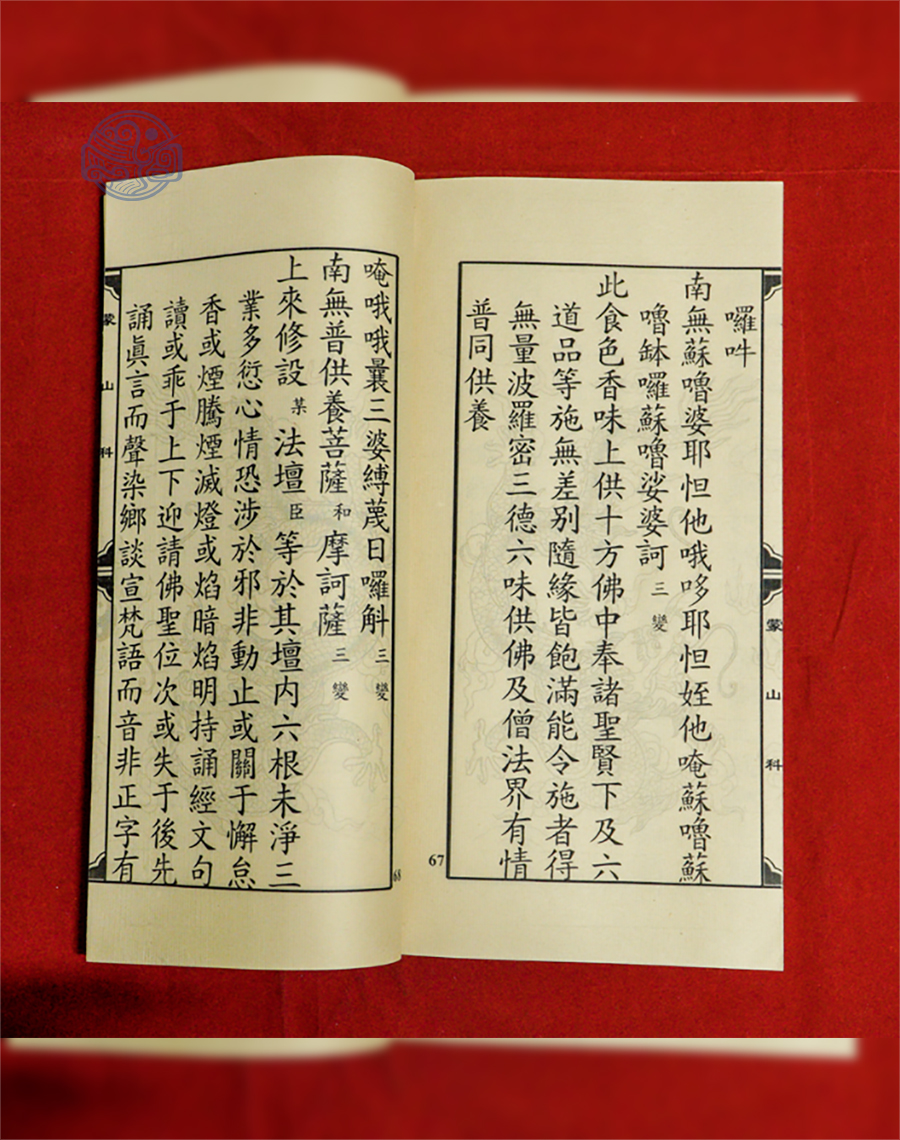 囉吽
南無蘇嚕婆耶怛他哦哆耶怛姪他唵蘇嚕蘇
嚕缽囉蘇嚕娑婆訶 三 變
此食色香味上供十方佛中奉諸聖賢下及六
道品等施無差別隨緣皆飽滿能令施者得
無量波羅密三德六味供佛及僧法界有情
普同供養
67
蒙山科
唵哦哦曩三婆縛蕟日囉斛 三 變
南無普供養菩薩 和 摩訶薩 三 變
上來修設 某 法壇 臣 等於其壇内六根未淨三
業多愆心情恐涉於邪非動止或關于懈怠
香或煙騰煙滅燈或焰暗焰明持誦經文句
讀或乖于上下迎請佛聖位次或失于後先
誦眞言而聲染鄉談宣梵語而音非正字有
68
蒙山科